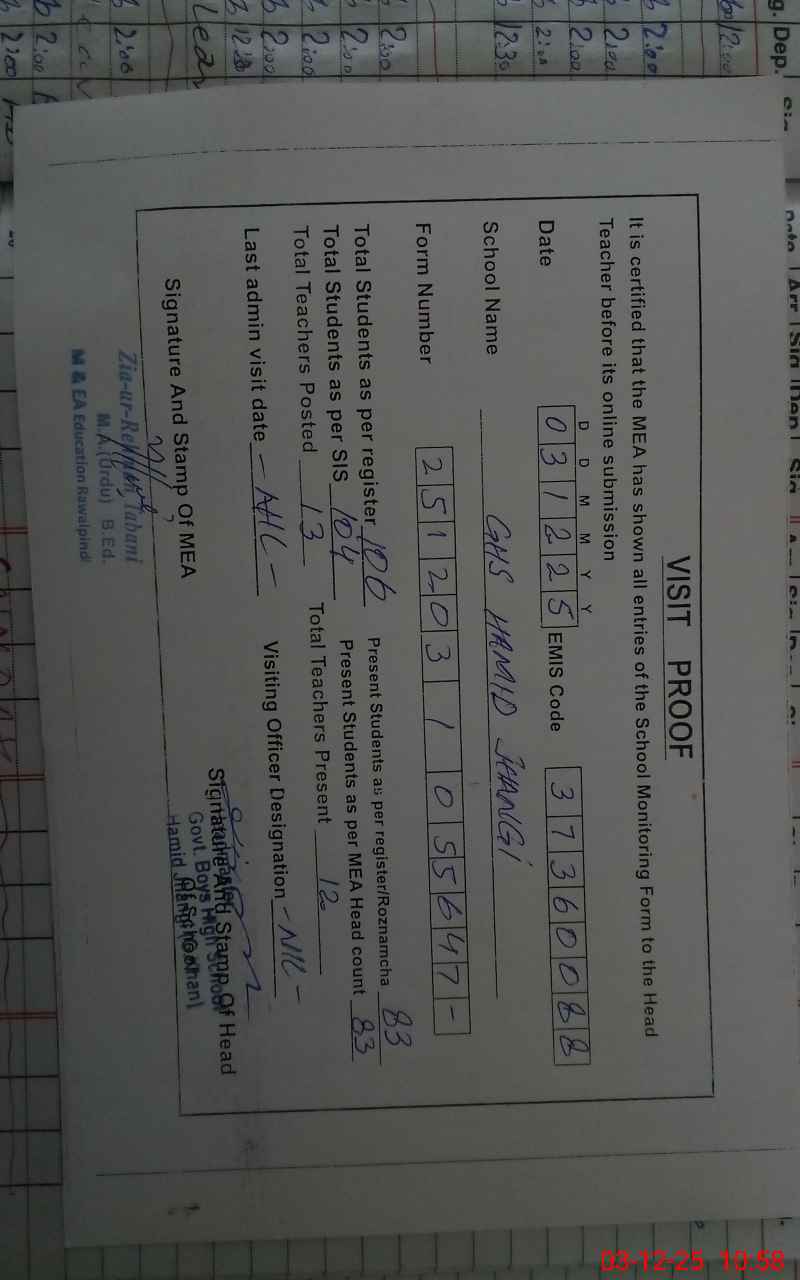 VISIT PROOF
It is certified that the MEA has shown all entries of the School Monitoring Form to the Head
Teacher before its online submission
D D M M Y Y
Date 0 3 1 2 2 5 EMIS Code 3 7 3 6 0 0 8 8
School Name GHS HAMID JHANGI
Form Number 2 5 1 2 0 3 1 0 5 5 6 4 7 -
Total Students as per register 106 Present Students as per register/Roznamcha 83
Total Students as per SIS 104 Present Students as per MEA Head count 83
Total Teachers Posted 13 Total Teachers Present 12
Last admin visit date - NIL - Visiting Officer Designation - NIL -
Signature And Stamp Of MEA
Signature And Stamp Of Head
Of School
Zia-ur-Rehman
M.A.(Urdu) B.Ed.
M & EA Education Rawalpindi
Govt. Boys High School
Hamid
g. Dep.
12:30
2:00
2:00
2:00
2:00
2:00
2:00
03-12-25 10:58